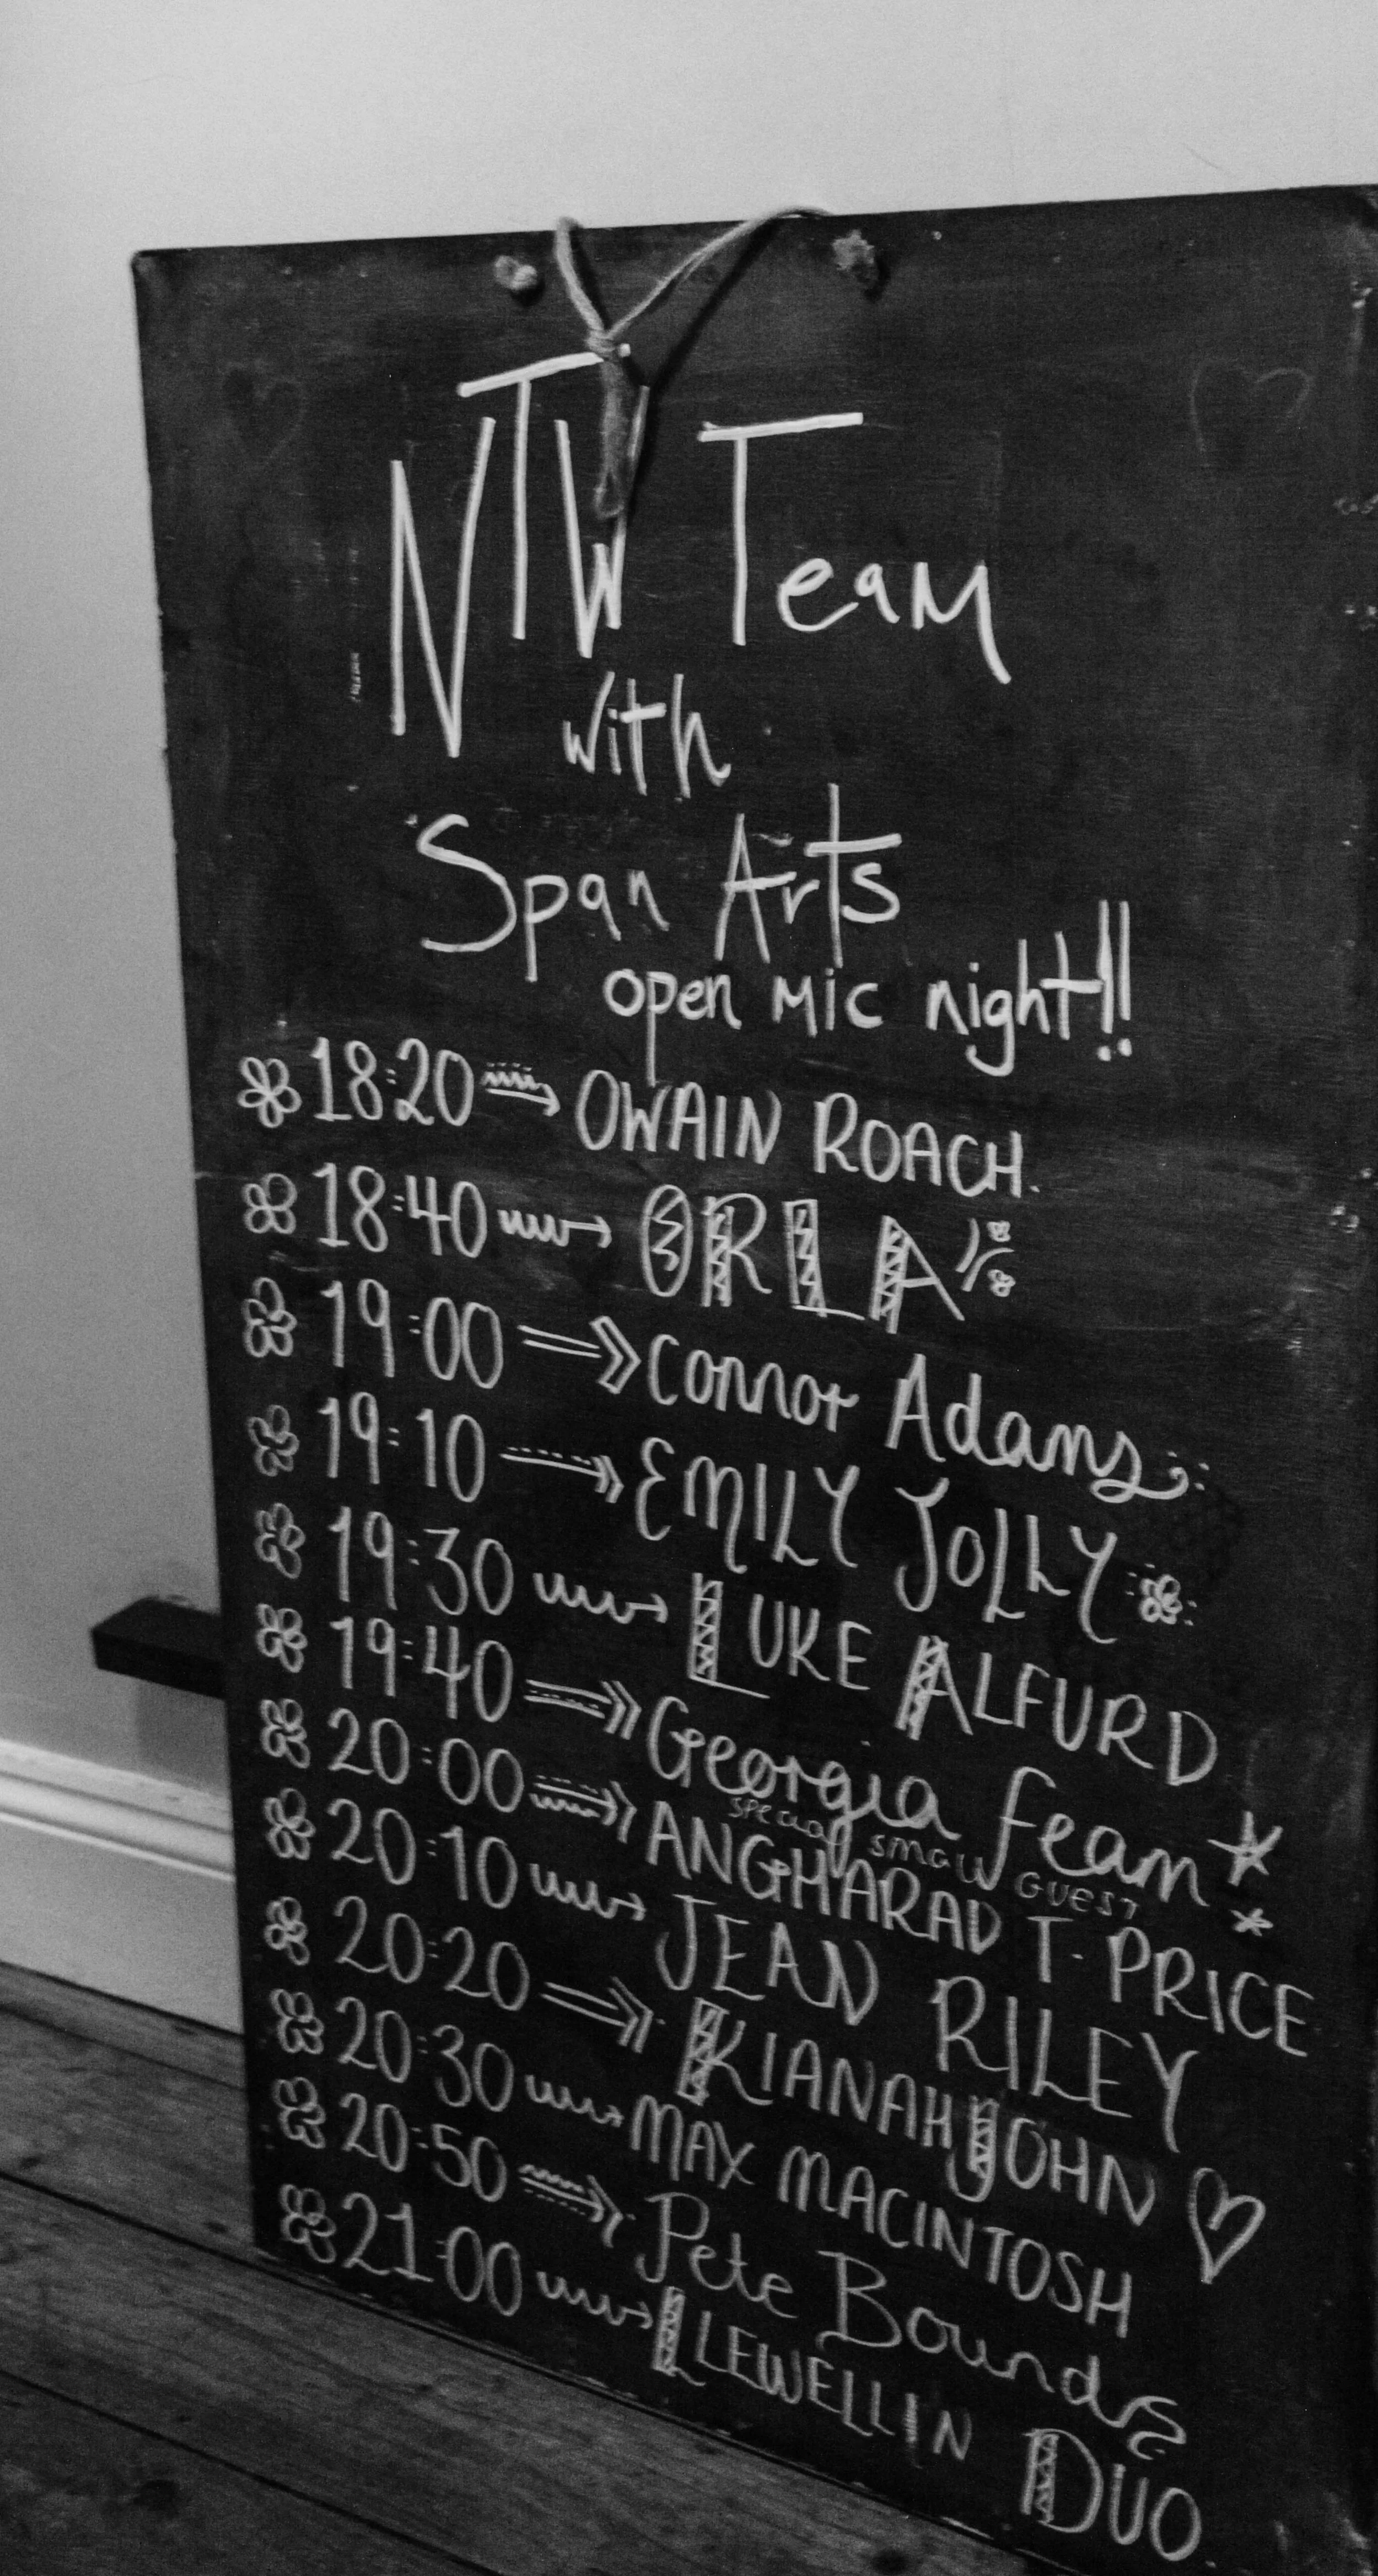 NTW Team
with
Span Arts
open mic night!!
18:20 OWAIN ROACH.
18:40 ORLA
19:00 Connor Adams
19:10 EMILY JOLLY
19:30 LUKE ALFURD
19:40 Georgia feam
special small GUEST
20:00 ANGHARAD T. PRICE
20:10 JEAN RILEY
20:20 KIANAH JOHN
20:30 MAX MACINTOSH
20:50 Pete Bounds
21:00 LLEWELLIN DUO